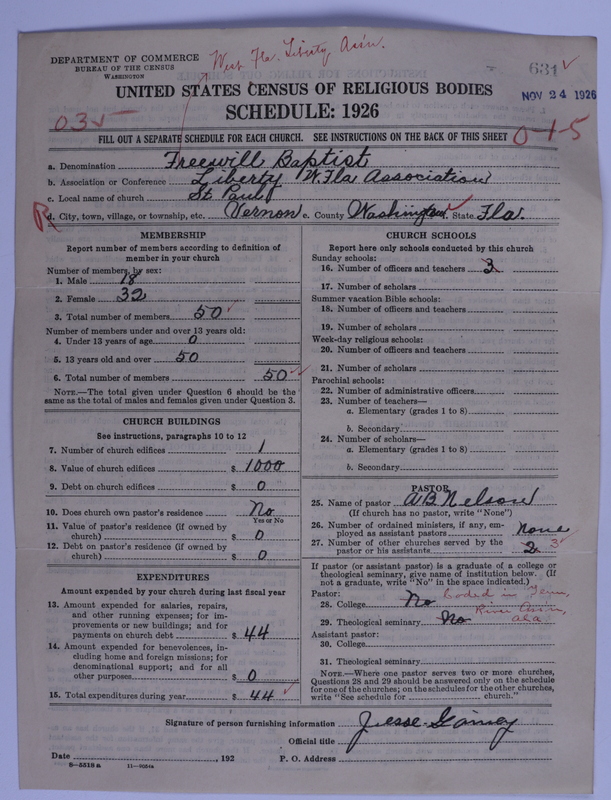 West Fla. Liberty Ass'n.
DEPARTMENT OF COMMERCE
BUREAU OF THE CENSUS
WASHINGTON
631
NOV 24 1926
UNITED STATES CENSUS OF RELIGIOUS BODIES
SCHEDULE: 1926
03
0-1-5
FILL OUT A SEPARATE SCHEDULE FOR EACH CHURCH. SEE INSTRUCTIONS ON THE BACK OF THIS SHEET
a. Denomination Freewill Baptist
b. Association or Conference Liberty W. Fla Association
c. Local name of church St Paul
R d. City, town, village, or township, etc. Vernon e. County Washington State Fla.
MEMBERSHIP
Report number of members according to definition of
member in your church
Number of members by sex:
1. Male 18
2. Female 32
3. Total number of members 50
Number of members under and over 13 years old:
4. Under 13 years of age 0
5. 13 years old and over 50
6. Total number of members 50
NOTE.—The total given under Question 6 should be the
same as the total of males and females given under Question 3.
CHURCH BUILDINGS
See instructions, paragraphs 10 to 12
7. Number of church edifices 1
8. Value of church edifices $ 1000
9. Debt on church edifices $ 0
10. Does church own pastor's residence No
Yes or No
11. Value of pastor's residence (if owned by
church) $ 0
12. Debt on pastor's residence (if owned by
church) $ 0
EXPENDITURES
Amount expended by your church during last fiscal year
13. Amount expended for salaries, repairs,
and other running expenses; for im-
provements or new buildings; and for
payments on church debt $ 44
14. Amount expended for benevolences, in-
cluding home and foreign missions; for
denominational support; and for all
other purposes $ 0
15. Total expenditures during year $ 44
CHURCH SCHOOLS
Report here only schools conducted by this church
Sunday schools:
16. Number of officers and teachers 3
17. Number of scholars
Summer vacation Bible schools:
18. Number of officers and teachers
19. Number of scholars
Week-day religious schools:
20. Number of officers and teachers
21. Number of scholars
Parochial schools:
22. Number of administrative officers
23. Number of teachers—
a. Elementary (grades 1 to 8)
b. Secondary
24. Number of scholars—
a. Elementary (grades 1 to 8)
b. Secondary
PASTOR
25. Name of pastor A B Nelson
(If church has no pastor, write "None")
26. Number of ordained ministers, if any, em-
ployed as assistant pastors None
27. Number of other churches served by the
pastor or his assistants 2 3
If pastor (or assistant pastor) is a graduate of a college or
theological seminary, give name of institution below. (If
not a graduate, write "No" in the space indicated.)
Pastor:
28. College No Coded in Tenn.
29. Theological seminary No River Ass'n, Ala.
Assistant pastor:
30. College
31. Theological seminary
NOTE.—Where one pastor serves two or more churches,
Questions 28 and 29 should be answered only on the schedule
for one of the churches; on the schedules for the other churches,
write "See schedule for church."
Signature of person furnishing information Jesse Gainey
Official title
Date , 192 P. O. Address
8—5518 a 11—9054a